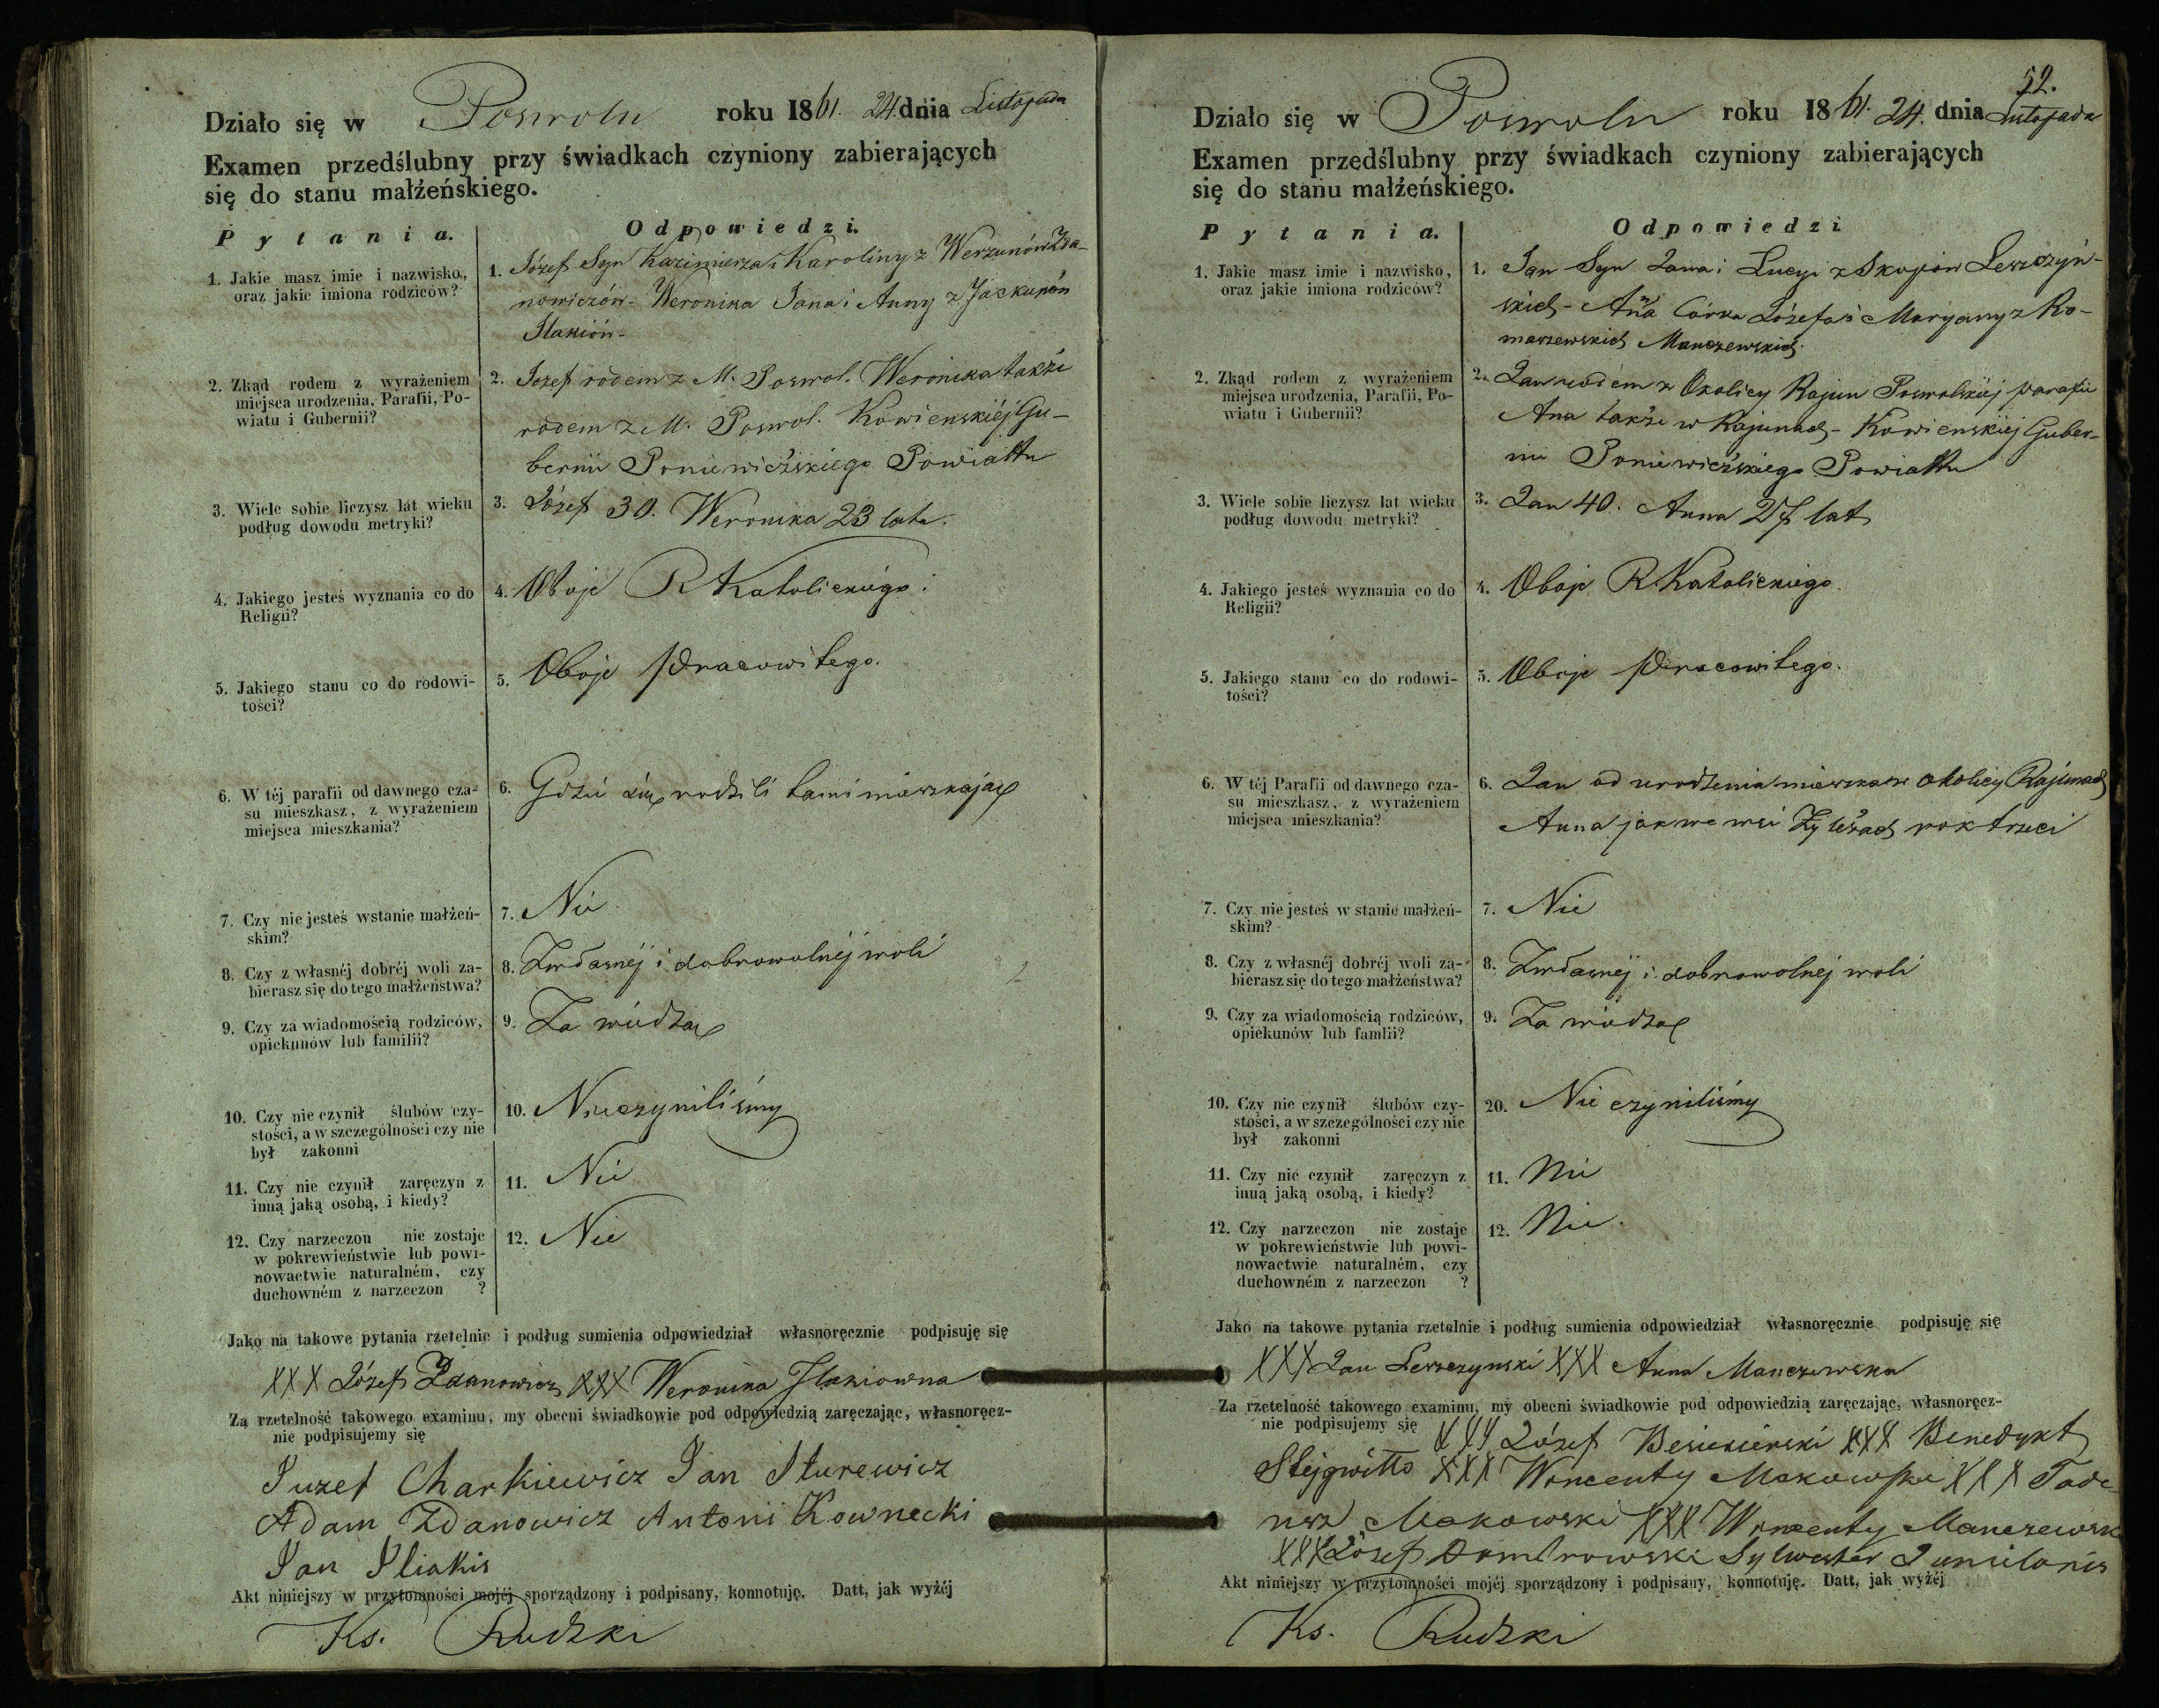 Działo się w Poswolu roku 1861. 24. dnia Listopada
Examen przedślubny przy świadkach czyniony zabierających
się do stanu małżeńskiego.
Pytania. Odpowiedzi.
1. Jakie masz imie i nazwisko,
oraz jakie imiona rodziców?
1. Józef Syn Kazimierza i Karoliny z Werzunów Zda-
nowiczów - Weronika Jana i Anny z Jackunón
2. Zkąd rodem z wyrażeniem
miejsca urodzenia, Parafii, Po-
wiatu i Gubernii?
2. Józef rodem z M. Poswol. Weronika także
rodem z M. Poswol. Kowienskiej Gu-
bernii Poniewieżskiego Powiattu
3. Wiele sobie liczysz lat wieku
podług dowodu metryki?
3. Józef 30. Weronika 23 lata.
4. Jakiego jesteś wyznania co do
Religii?
4. Oboje R Katolickiégo.
5. Jakiego stanu co do rodowi-
tości?
5. Oboje Pracowitego.
6. W téj parafii od dawnego cza-
su mieszkasz, z wyrażeniem
miejsca mieszkania?
6. Gdzie się rodzili tam i mieszkają
7. Czy nie jesteś wstanie małżeń-
skim?
7. Nie
8. Czy z własnéj dobréj woli za-
bierasz się do tego małżeństwa?
8. Zwłasnéj i dobrowolnéj woli
9. Czy za wiadomością rodziców,
opiekunów lub familii?
9. Za wiedzą
10. Czy nie czynił ślubów czy-
stości, a w szczególności czy nie
był zakonni
10. Nieczyniliśmy
11. Czy nie czynił zaręczyn z
inną jaką osobą, i kiedy?
11. Nie
12. Czy narzeczon nie zostaje
w pokrewieństwie lub powi-
nowactwie naturalném, czy
duchowném z narzeczon ?
12. Nie
Jako na takowe pytania rzetelnie i podług sumienia odpowiedział własnoręcznie podpisuję się
XXX Józef Zdanowicz XXX Weronika
Za rzetelność takowego examinu, my obecni świadkowie pod odpowiedzią zaręczając, własnoręcz-
nie podpisujemy się
Juzef Charkiewicz Jan Sturewicz
Adam Zdanowicz Antoni Kownecki
Jan Sliakis
Akt niniejszy w przytomności mojéj sporządzony i podpisany, konnotuję. Datt, jak wyżéj
Ks. Rudzki
52.
Działo się w Poswolu roku 1861. 24. dnia Listopada
Examen przedślubny przy świadkach czyniony zabierających
się do stanu małżeńskiego.
Pytania. Odpowiedzi
1. Jakie masz imie i nazwisko,
oraz jakie imiona rodziców?
1. Jan Syn Jana i Lucyi z Skupów Leszczyń-
skich - Anna Córka Józefa i Maryany z Ro-
maszewskich Manczewskich.
2. Zkąd rodem z wyrażeniem
miejsca urodzenia, Parafii, Po-
wiatu i Gubernii?
2. Jan rodem z Okolicy Rajun Poswolskiéj parafii
Ana także w Rajunach - Kowienskiéj Guber-
nii Poniewieżskiego Powiattu
3. Wiele sobie liczysz lat wieku
podług dowodu metryki?
3. Jan 40. Anna 27 lat
4. Jakiego jesteś wyznania co do
Religii?
4. Oboje R. Katolickiego.
5. Jakiego stanu co do rodowi-
tości?
5. Oboje Pracowitego.
6. W téj Parafii od dawnego cza-
su mieszkasz, z wyrażeniem
miejsca mieszkania?
6. Jan od urodzenia mieszka w okolicy Rajunach
Anna jak we wsi rok trzeci
7. Czy nie jesteś w stanie małżeń-
skim?
7. Nie
8. Czy z własnéj dobréj woli za-
bierasz się do tego małżeństwa?
8. Zwłasnéj i dobrowolnéj woli
9. Czy za wiadomością rodziców,
opiekunów lub famlii?
9. Za wiedzą
10. Czy nie czynił ślubów czy-
stości, a w szczególności czy nie
był zakonni
20. Nie czyniliśmy
11. Czy nie czynił zaręczyn z
inną jaką osobą, i kiedy?
11. Nie
12. Czy narzeczon nie zostaje
w pokrewieństwie lub powi-
nowactwie naturalném, czy
duchowném z narzeczon ?
12. Nie.
Jako na takowe pytania rzetelnie i podług sumienia odpowiedział własnoręcznie podpisuję się
XXX Jan Leszczynski XXX Anna Manczewska
Za rzetelność takowego examinu, my obecni świadkowie pod odpowiedzią zaręczając, własnoręcz-
nie podpisujemy się XXX Józef XXX Benedykt
Stejgwitto XXX Wincenty Makowski XXX Tade-
usz Makowski XXX Wincenty Manczewski
XXX Józef Dombrowski Sylwester
Akt niniejszy w przytomności mojéj sporządzony i podpisany, konnotuję. Datt, jak wyżéj
Ks. Rudzki